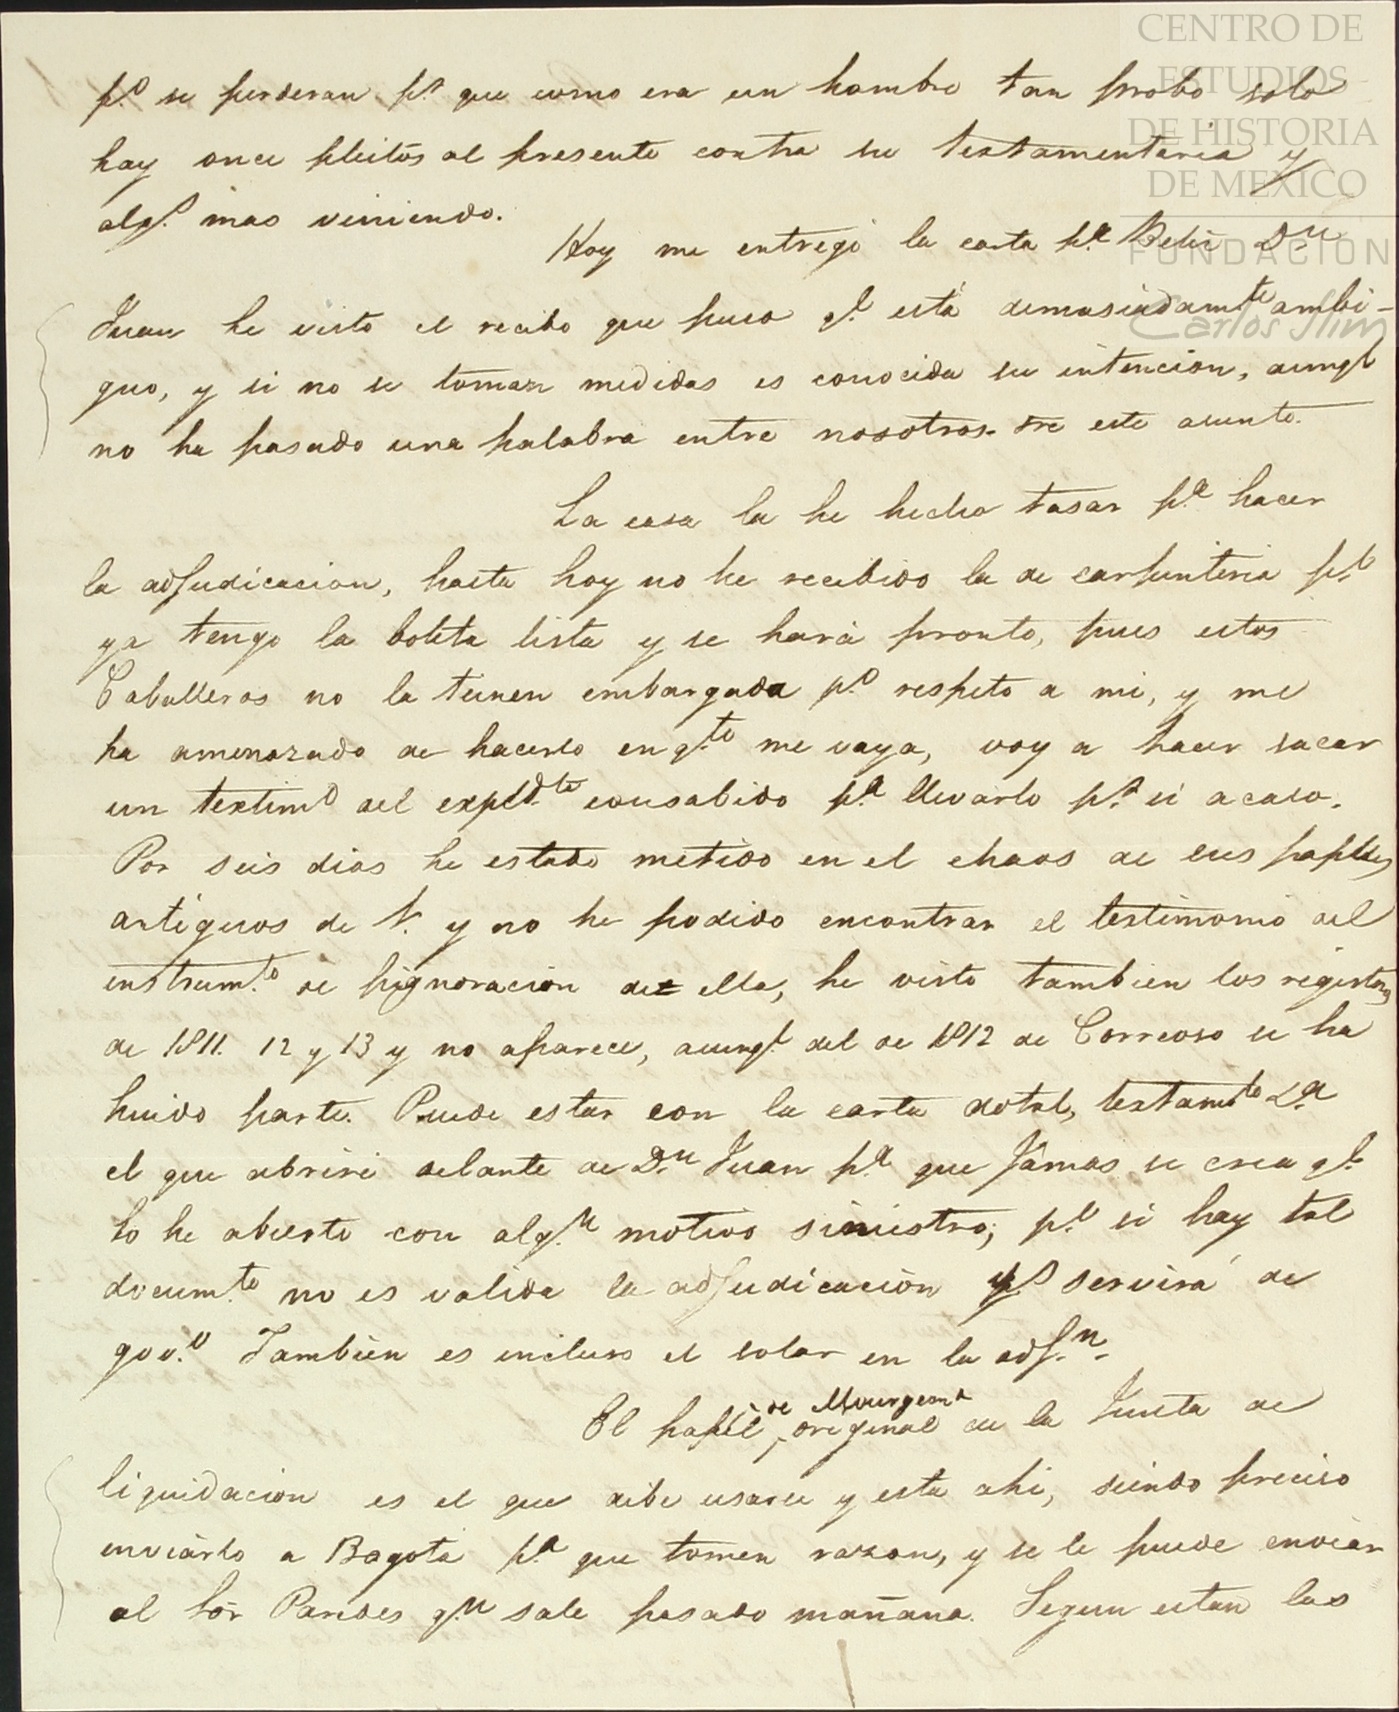 CENTRO DE
ESTUDIOS
DE HISTORIA
DE MEXICO
FUNDACION
Carlos Slim
p.º se perderan p.r que como era un hombre tan probo solo
hay once pleitos al presente contra su testamentaria y
alg.s mas viniendo.
Hoy me entregó la carta p.a D.n
Juan he visto el recibo que puso q.e está demasiadam.te ambi-
guo, y si no se toman medidas es conocida su intencion, aunq.e
no ha pasado una palabra entre nosotros sre este asunto.
La casa la he hecho tasar p.a hacer
la adjudicacion, hasta hoy no he recibido la de carpinteria p.o
ya tengo la boleta lista y se hará pronto, pues estos
Caballeros no la tienen embargada p.r respeto a mi, y me
ha amenazado de hacerlo en q.to me vaya, voy a hacer sacar
un testim.o del exped.te consabido p.a llevarlo p.r si acaso.
Por seis dias he estado metido en el chaos de sus papeles
antiguos de V. y no he podido encontrar el testimonio del
instrum.to de pignoracion de ella, he visto tambien los registros
de 1811. 12 y 13 y no aparece, aunq.e del de 1812 de Correoso se ha
huido parte. Puede estar con la carta dotal, testam.to &.a
el que abriré delante de D.n Juan p.a que jámas se crea q.e
lo he abierto con alg.n motivo siniestro; p.s si hay tal
docum.to no es valida la adjudicacion y servirá de
gov.o Tambien es incluso el solar en la adj.n.
El papel de Mourgeon original de la Junta de
liquidacion es el que debe usarse y esta ahi, siendo preciso
enviarlo a Bogotá p.a que tomen razon, y se le puede enviar
al Sõr Paredes q.n sale pasado mañana. Segun estan las